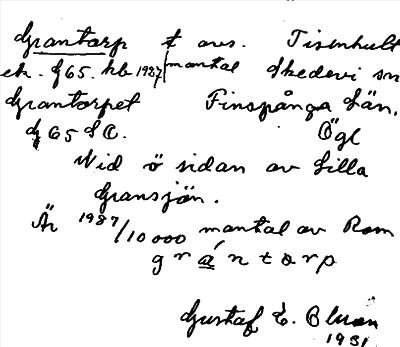 Grantorp t ovs. Tisenhult
ek. g 65. hb 1987/mantal Skedevi sn
Grantorpet Finspånga län.
g 65 SO. Ögl
Vid ö sidan av Lilla
Gransjön.
Är 1987/10000 mantal av Rom
grántorp
Gustaf E.
1931